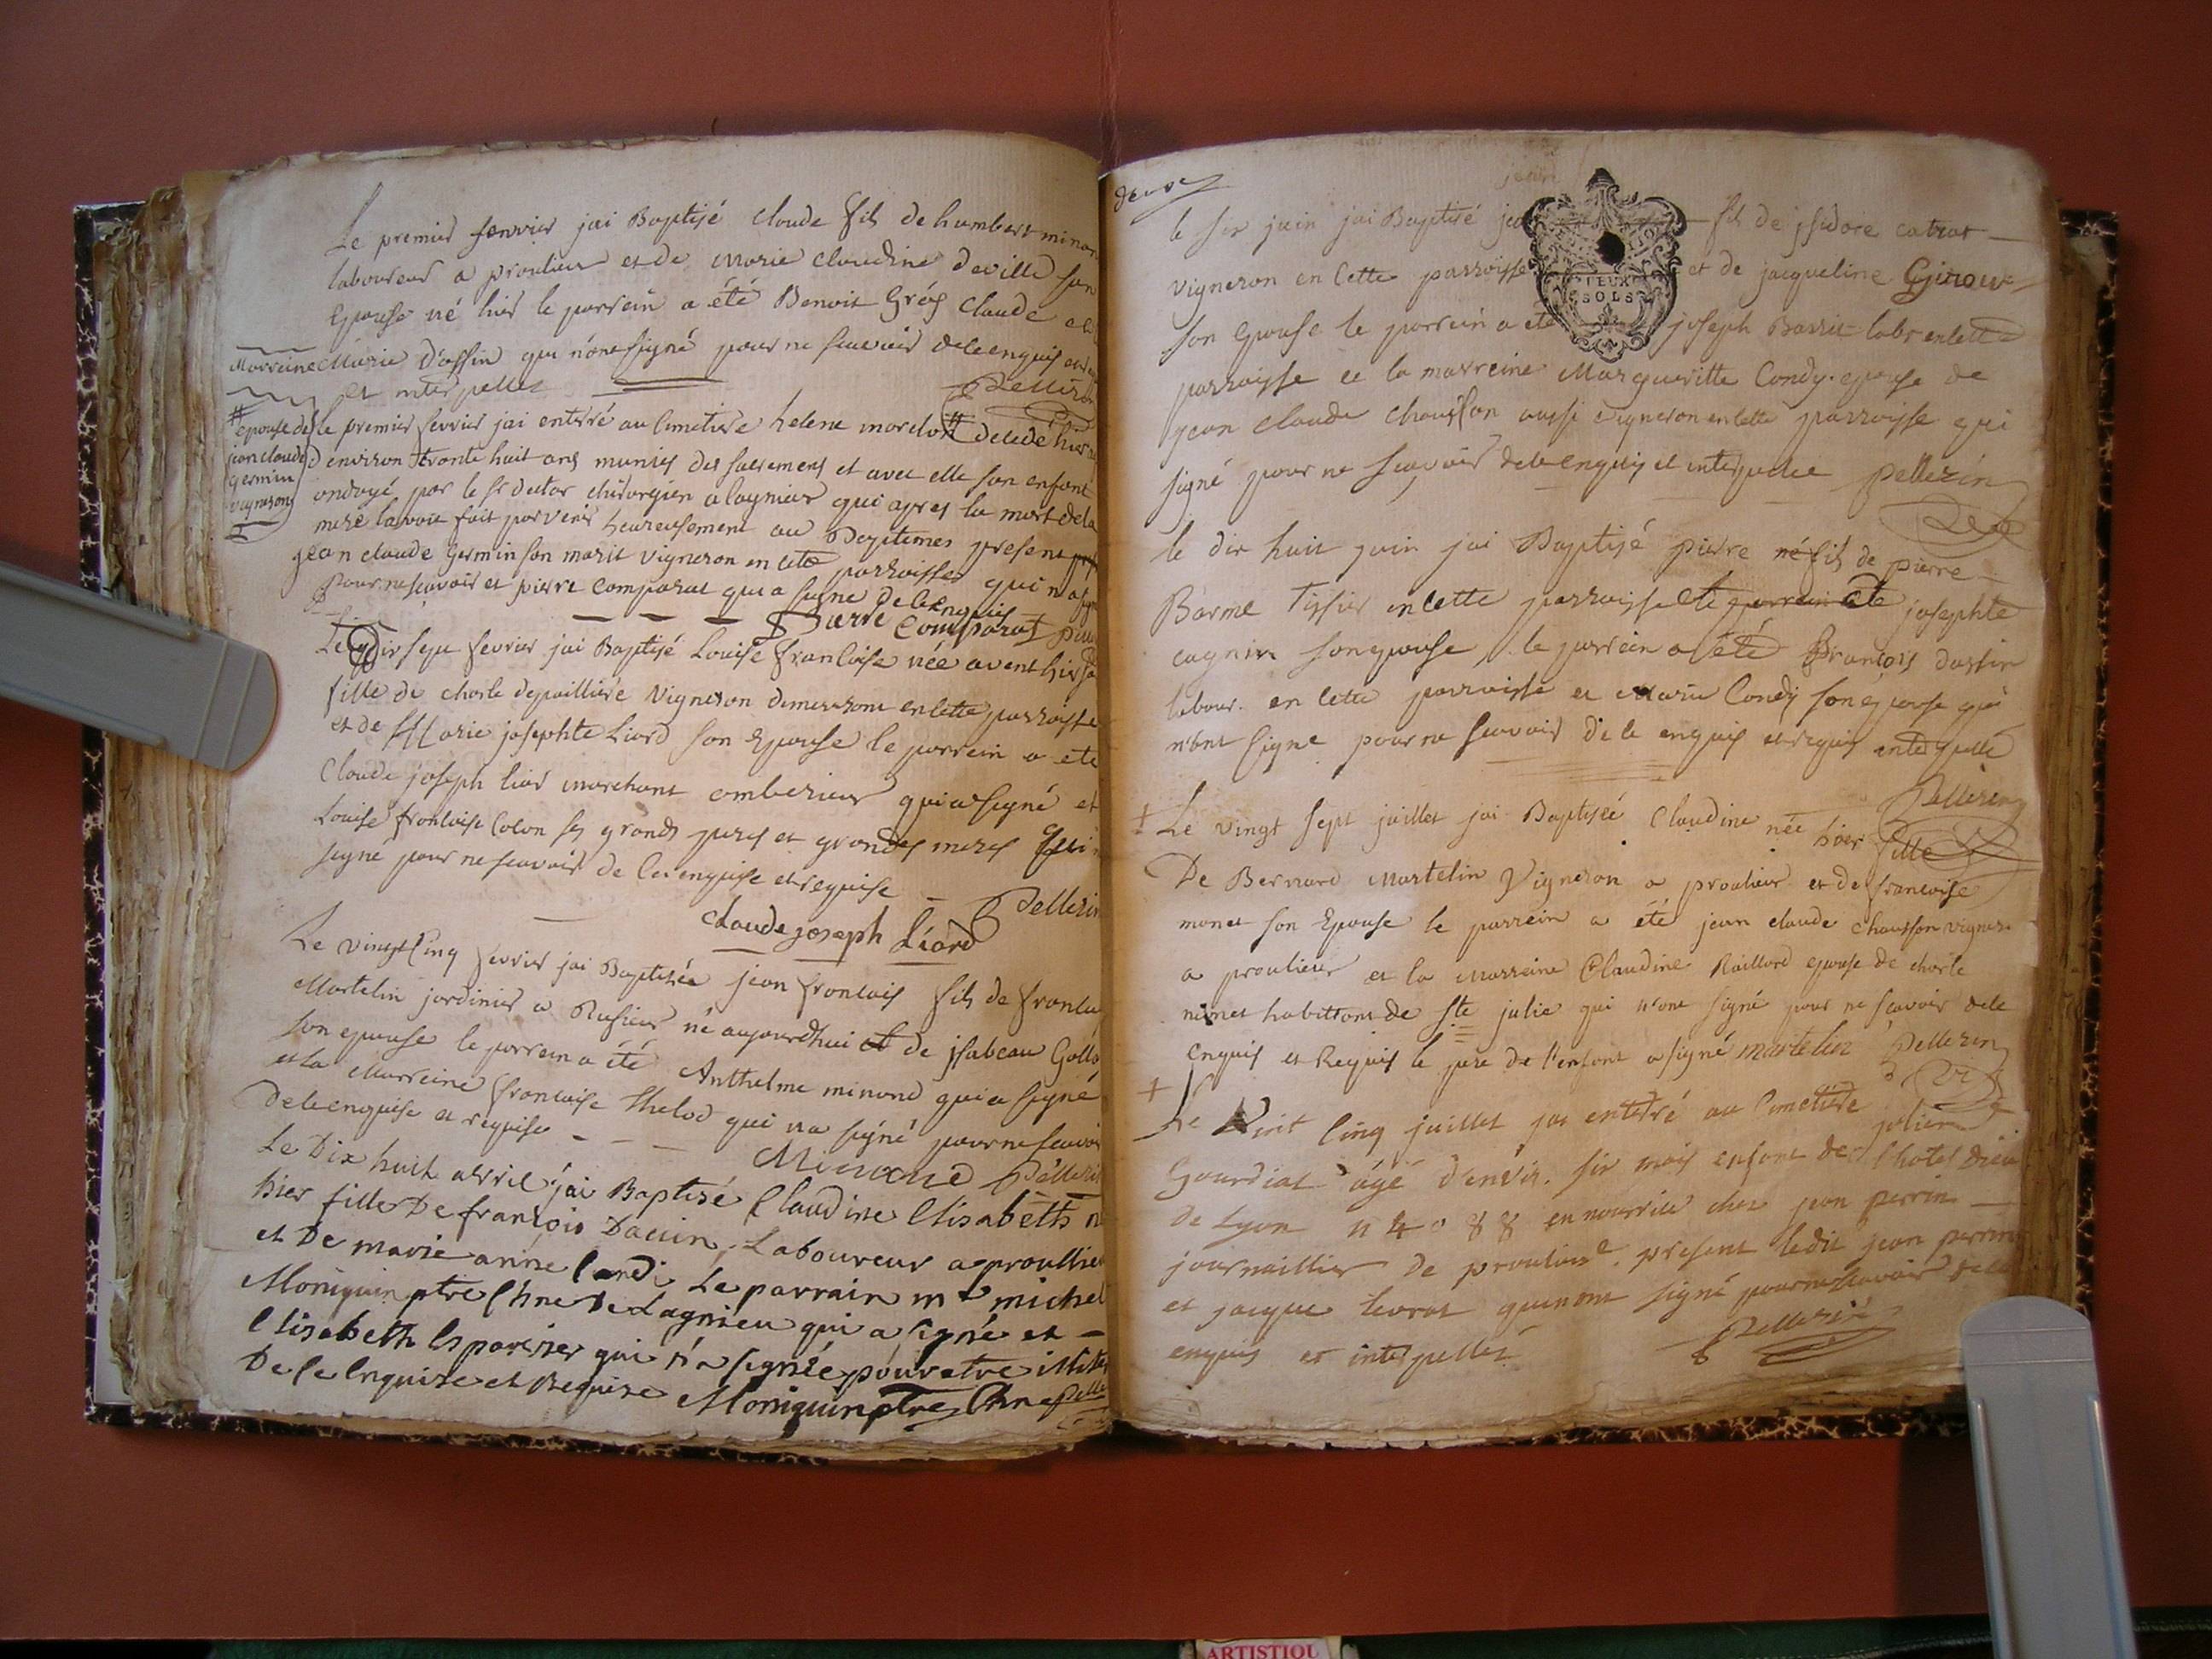 Le premier fevrier jai Baptisé claude fils de humbert minan
laboureur a proulieu et de marie claudine deville son
Epouse né hier le parrein a été Benoit Gréaz claude et
Marreine Marie d'assin qui n'ont signé pour ne scavoir de ce enquis
et interpellez Pellerin
# epouse de jean claude germin vigneron
le premier fevrier jai enterré au cimetiere helene morelon # decedé hier
d environ trente huit ans munies des sacremens et avec elle son enfant
ondoyé par le Sr chirurgien a lagnieu qui apres la mort de la
mere lavoit fait parvenir heureusement au Baptemes present
jean claude germin son marit vigneron en cete parroisse qui na signé
pour ne scavoir et pierre comparat qui a signé de ce Enquis
Pierre Comparat
Le dix sept fevrier jai Baptisé Louise francoise née avent hier
fille de charle depailliere vigneron demeurant en cette parroisse
et de Marie josephte Liard son Epouse le parrein a eté
Claude joseph liar marchant amberieux qui a signé et
Louise francoise Colon ses grands peres et grandes meres qui
signé pour ne scavoir de ce enquise et requise Pellerin
claude joseph Liard
Le vingt cinq fevrier jai Baptisée jean francois fils de
Martelin jardinier a Rusieux né aujourdhui et de jsabeau
son epouse le parrein a été Anthelme minand qui a signé
et la Marreine francoise thelod qui na signé pour ne scavoir
de ce enquise et requise Minand Pellerin
Le Dix huit avril j'ai Baptisé Claudine Elisabeth n
hier fille De francois Dacin Laboureur a proullieu
et De marie anne Condi Le parrain mr michel
Moniquin ptre Chne De Lagnieu qui a signé et
Elisabeth Esparvier qui n'a signée pour etre
De ce Enquise et Requise Moniquin ptre Chne Pelle
deux
DEUX SOLS
le six juin jai Baptisé jean fils de jsidore catrat
vigneron en cette parroisse et de jacqueline Giroux
son epouse le parrein a eté joseph Barrit labr en cette
parroisse et la marreine Margueritte Condy epouse de
jean claude chausson aussi vigneron en cette parroisse qui
signé pour ne scavoir de ce enquis et interpellée pellerin
le dix huit juin jai Baptisé pierre né fils de pierre
Barme Tissier en cette parroisse et josephte
cagnin son epouse, le parrein a été François dassin
labour. en cette parroisse et Marie Condy son epouse qui
n'ont signé pour ne scavoir de ce enquis et requis interpellé
Pellerin
‡ Le vingt sept juillet jai Baptiséé Claudine née hier fille
De Bernard Martelin Vigneron a proulieu et de francoise
monet son Epouse le parrein a été jean claude chausson vigneron
a proulieu et la Marreine Claudine Raillard epouse de charle
nimet habittant de ste julie qui n'ont signé pour ne scavoir de ce
Enquis et Requis le pere de l'enfant a signé martelin Pellerin
‡ Le vint cinq juillet jai enterré au cimetiere julien
Gourdiat agé d'envir. six mois enfant de l'hotel dieu
de Lyon n 4088 en nourrice chez jean perrin
journaillier de proulieu. present ledit jean perrin
et jacque levrat qui n'ont signé pour ne scavoir de ce
enquis et interpellés Pellerin
ARTISTIQU